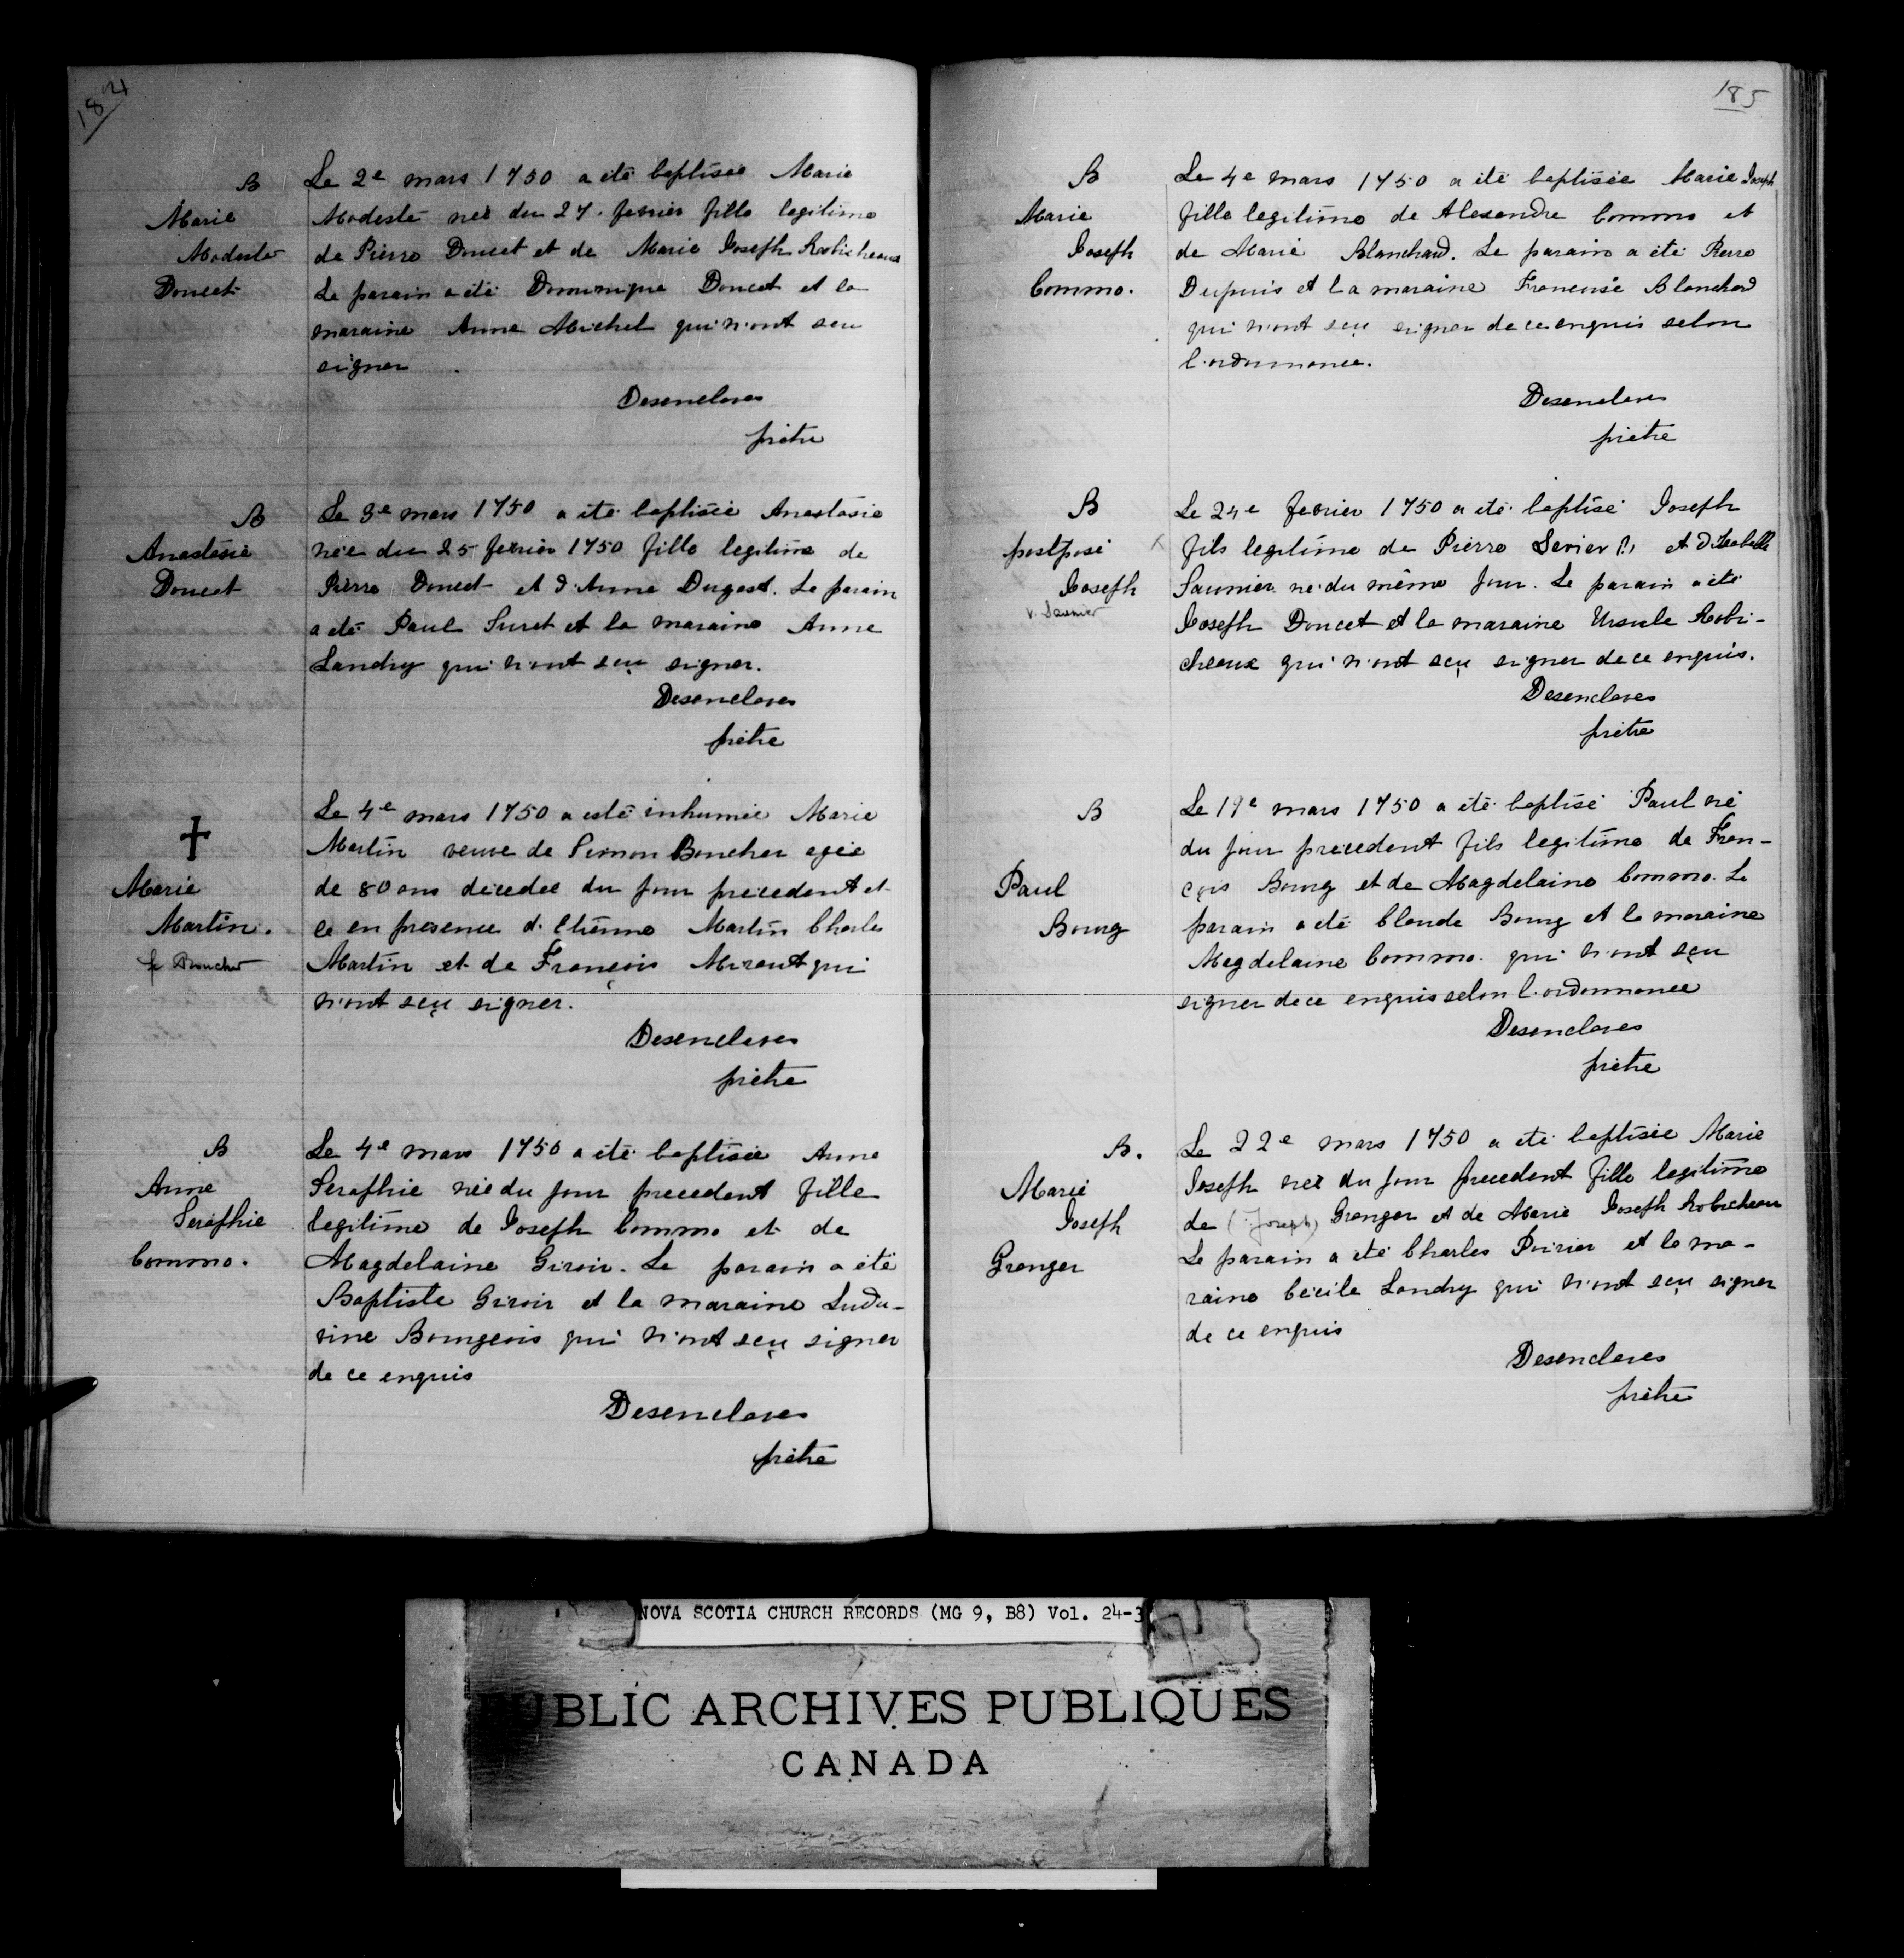 184
B
Marie
Modeste
Doucet
Le 2e mars 1750 a été baptisée Marie
Modeste née du 27. fevrier fille legitime
de Pierre Doucet et de Marie Joseph Robicheaux
Le parain a été Dommique Doucet et la
maraine Anne Michel qui n'ont seu
signer.
Desenclaves
prêtre
B
Anastasie
Doucet
Le 3e mars 1750 a été baptisée Anastasie
née du 25 fevrier 1750 fille legitime de
Pierre Doucet et d'Anne Dugast. Le parain
a été Paul Suret et la maraine Anne
Landry qui n'ont sçu signer.
Desenclaves
prêtre
✝
Marie
Martin.
f Boucher
Le 4e mars 1750 a esté inhumée Marie
Martin veuve de Pierre Boucher agée
de 80 ans décedée du jour precedent et
ce en presence d'Etienne Martin Charles
Martin et de François qui
n'ont sçu signer.
Desenclaves
prêtre
B
Anne
Seraphie
Commo.
Le 4e mars 1750 a été baptisée Anne
Seraphie née du jour precedent fille
legitime de Joseph Commo et de
Magdelaine Giroir. Le parain a été
Baptiste Giroir et la maraine Ludu-
vine Bourgeois qui n'ont sçu signer
de ce enquis
Desenclaves
prêtre
185
B
Marie
Joseph
Commo.
Le 4e mars 1750 a été baptisée Marie Joseph
fille legitime de Alexandre Commo et
de Marie Blanchard. Le parain a été Pierre
Dupuis et la maraine Franeuse Blanchard
qui n'ont sçu signer de ce enquis selon
l'ordonnance.
Desenclaves
prêtre
B
postposé
Joseph
v. Saunier
Le 24e fevrier 1750 a été baptisé Joseph
fils legitime de Pierre Levier (?) et d'Isabelle
Saunier né du même jour. Le parain a été
Joseph Doucet et la maraine Ursule Robi-
cheaux qui n'ont sçu signer de ce enquis.
Desenclaves
prêtre
B
Paul
Bourg
Le 17e mars 1750 a été baptisé Paul né
du jour precedent fils legitime de Fran-
çois Bourg et de Magdelaine Commo. Le
parain a été Claude Bourg et la maraine
Magdelaine Commo. qui n'ont sçu
signer de ce enquis selon l'ordonnance
Desenclaves
prêtre
B.
Marie
Joseph
Granger
Le 22e mars 1750 a été baptisée Marie
Joseph née du jour precedent fille legitime
de (Joseph) Granger et de Marie Joseph Robicheau
Le parain a été Charles Poirier et la ma-
raine Cécile Landry qui n'ont sçu signer
de ce enquis
Desenclaves
prêtre
NOVA SCOTIA CHURCH RECORDS (MG 9, B8) Vol. 24-3
PUBLIC ARCHIVES PUBLIQUES
CANADA